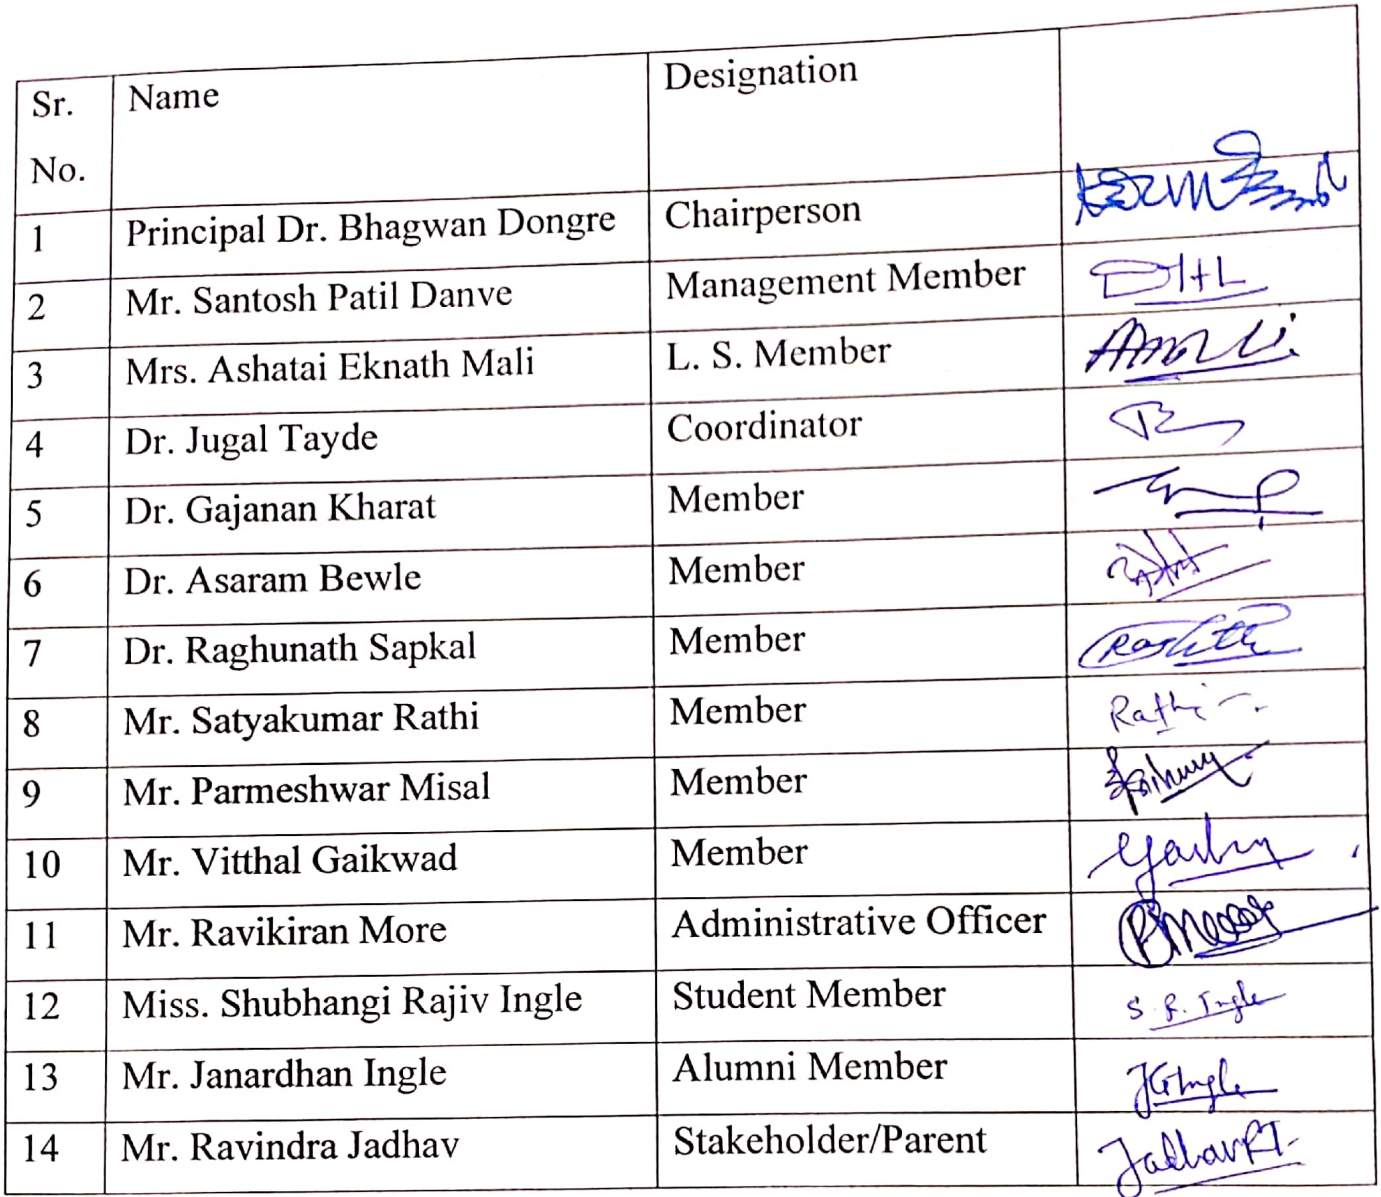 Sr. No. Name Designation
1 Principal Dr. Bhagwan Dongre Chairperson
2 Mr. Santosh Patil Danve Management Member
3 Mrs. Ashatai Eknath Mali L. S. Member
4 Dr. Jugal Tayde Coordinator
5 Dr. Gajanan Kharat Member
6 Dr. Asaram Bewle Member
7 Dr. Raghunath Sapkal Member
8 Mr. Satyakumar Rathi Member Rathi
9 Mr. Parmeshwar Misal Member
10 Mr. Vitthal Gaikwad Member
11 Mr. Ravikiran More Administrative Officer
12 Miss. Shubhangi Rajiv Ingle Student Member S. R. Ingle
13 Mr. Janardhan Ingle Alumni Member JGIngle
14 Mr. Ravindra Jadhav Stakeholder/Parent Jadhav R.T.